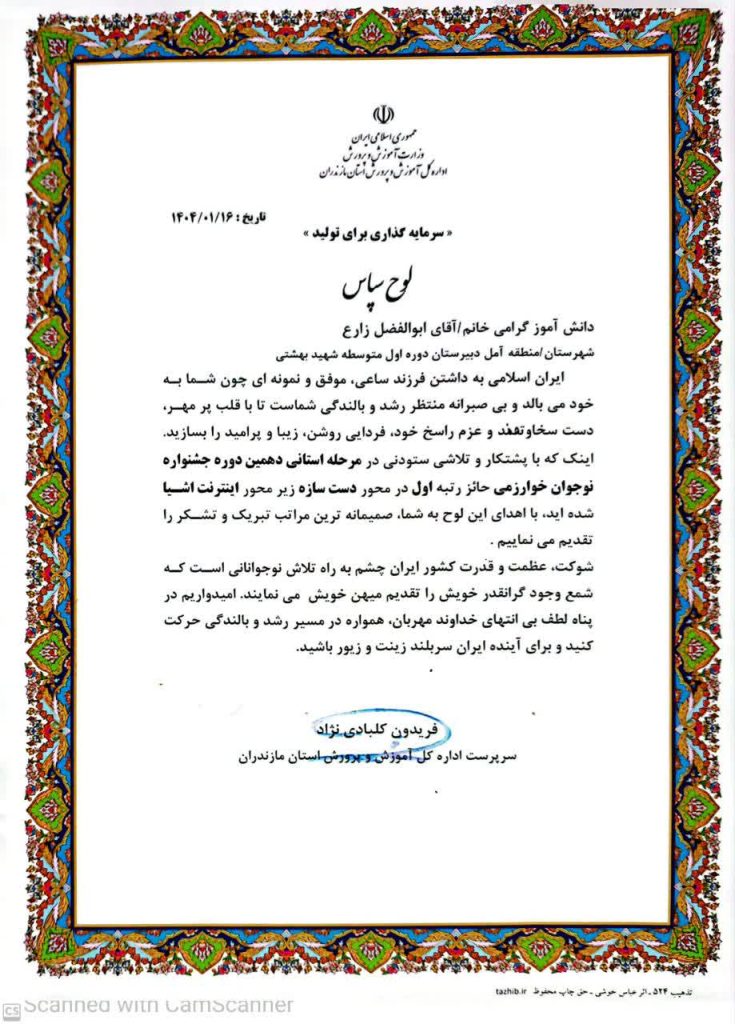 جمهوری اسلامی ایران
وزارت آموزش و پرورش
اداره کل آموزش و پرورش استان مازندران
تاریخ : ۱۴۰۴/۰۱/۱۶
« سرمایه گذاری برای تولید »
لوح سپاس
دانش آموز گرامی خانم/آقای ابوالفضل زارع
شهرستان/منطقه آمل دبیرستان دوره اول متوسطه شهید بهشتی
ایران اسلامی به داشتن فرزند ساعی، موفق و نمونه ای چون شما به
خود می بالد و بی صبرانه منتظر رشد و بالندگی شماست تا با قلب پر مهر،
دست سخاوتمند و عزم راسخ خود، فردایی روشن، زیبا و پرامید را بسازید.
اینک که با پشتکار و تلاشی ستودنی در مرحله استانی دهمین دوره جشنواره
نوجوان خوارزمی حائز رتبه اول در محور دست سازه زیر محور اینترنت اشیا
شده اید، با اهدای این لوح به شما، صمیمانه ترین مراتب تبریک و تشکر را
تقدیم می نماییم .
شوکت، عظمت و قدرت کشور ایران چشم به راه تلاش نوجوانانی است که
شمع وجود گرانقدر خویش را تقدیم میهن خویش می نمایند. امیدواریم در
پناه لطف بی انتهای خداوند مهربان، همواره در مسیر رشد و بالندگی حرکت
کنید و برای آینده ایران سربلند زینت و زیور باشید.
فریدون کلبادی نژاد
سرپرست اداره کل آموزش و پرورش استان مازندران
تذهیب ۵۲۴ ـ اثر عباس خوشی ـ حق چاپ محفوظ tazhib.ir
CS Scanned with CamScanner